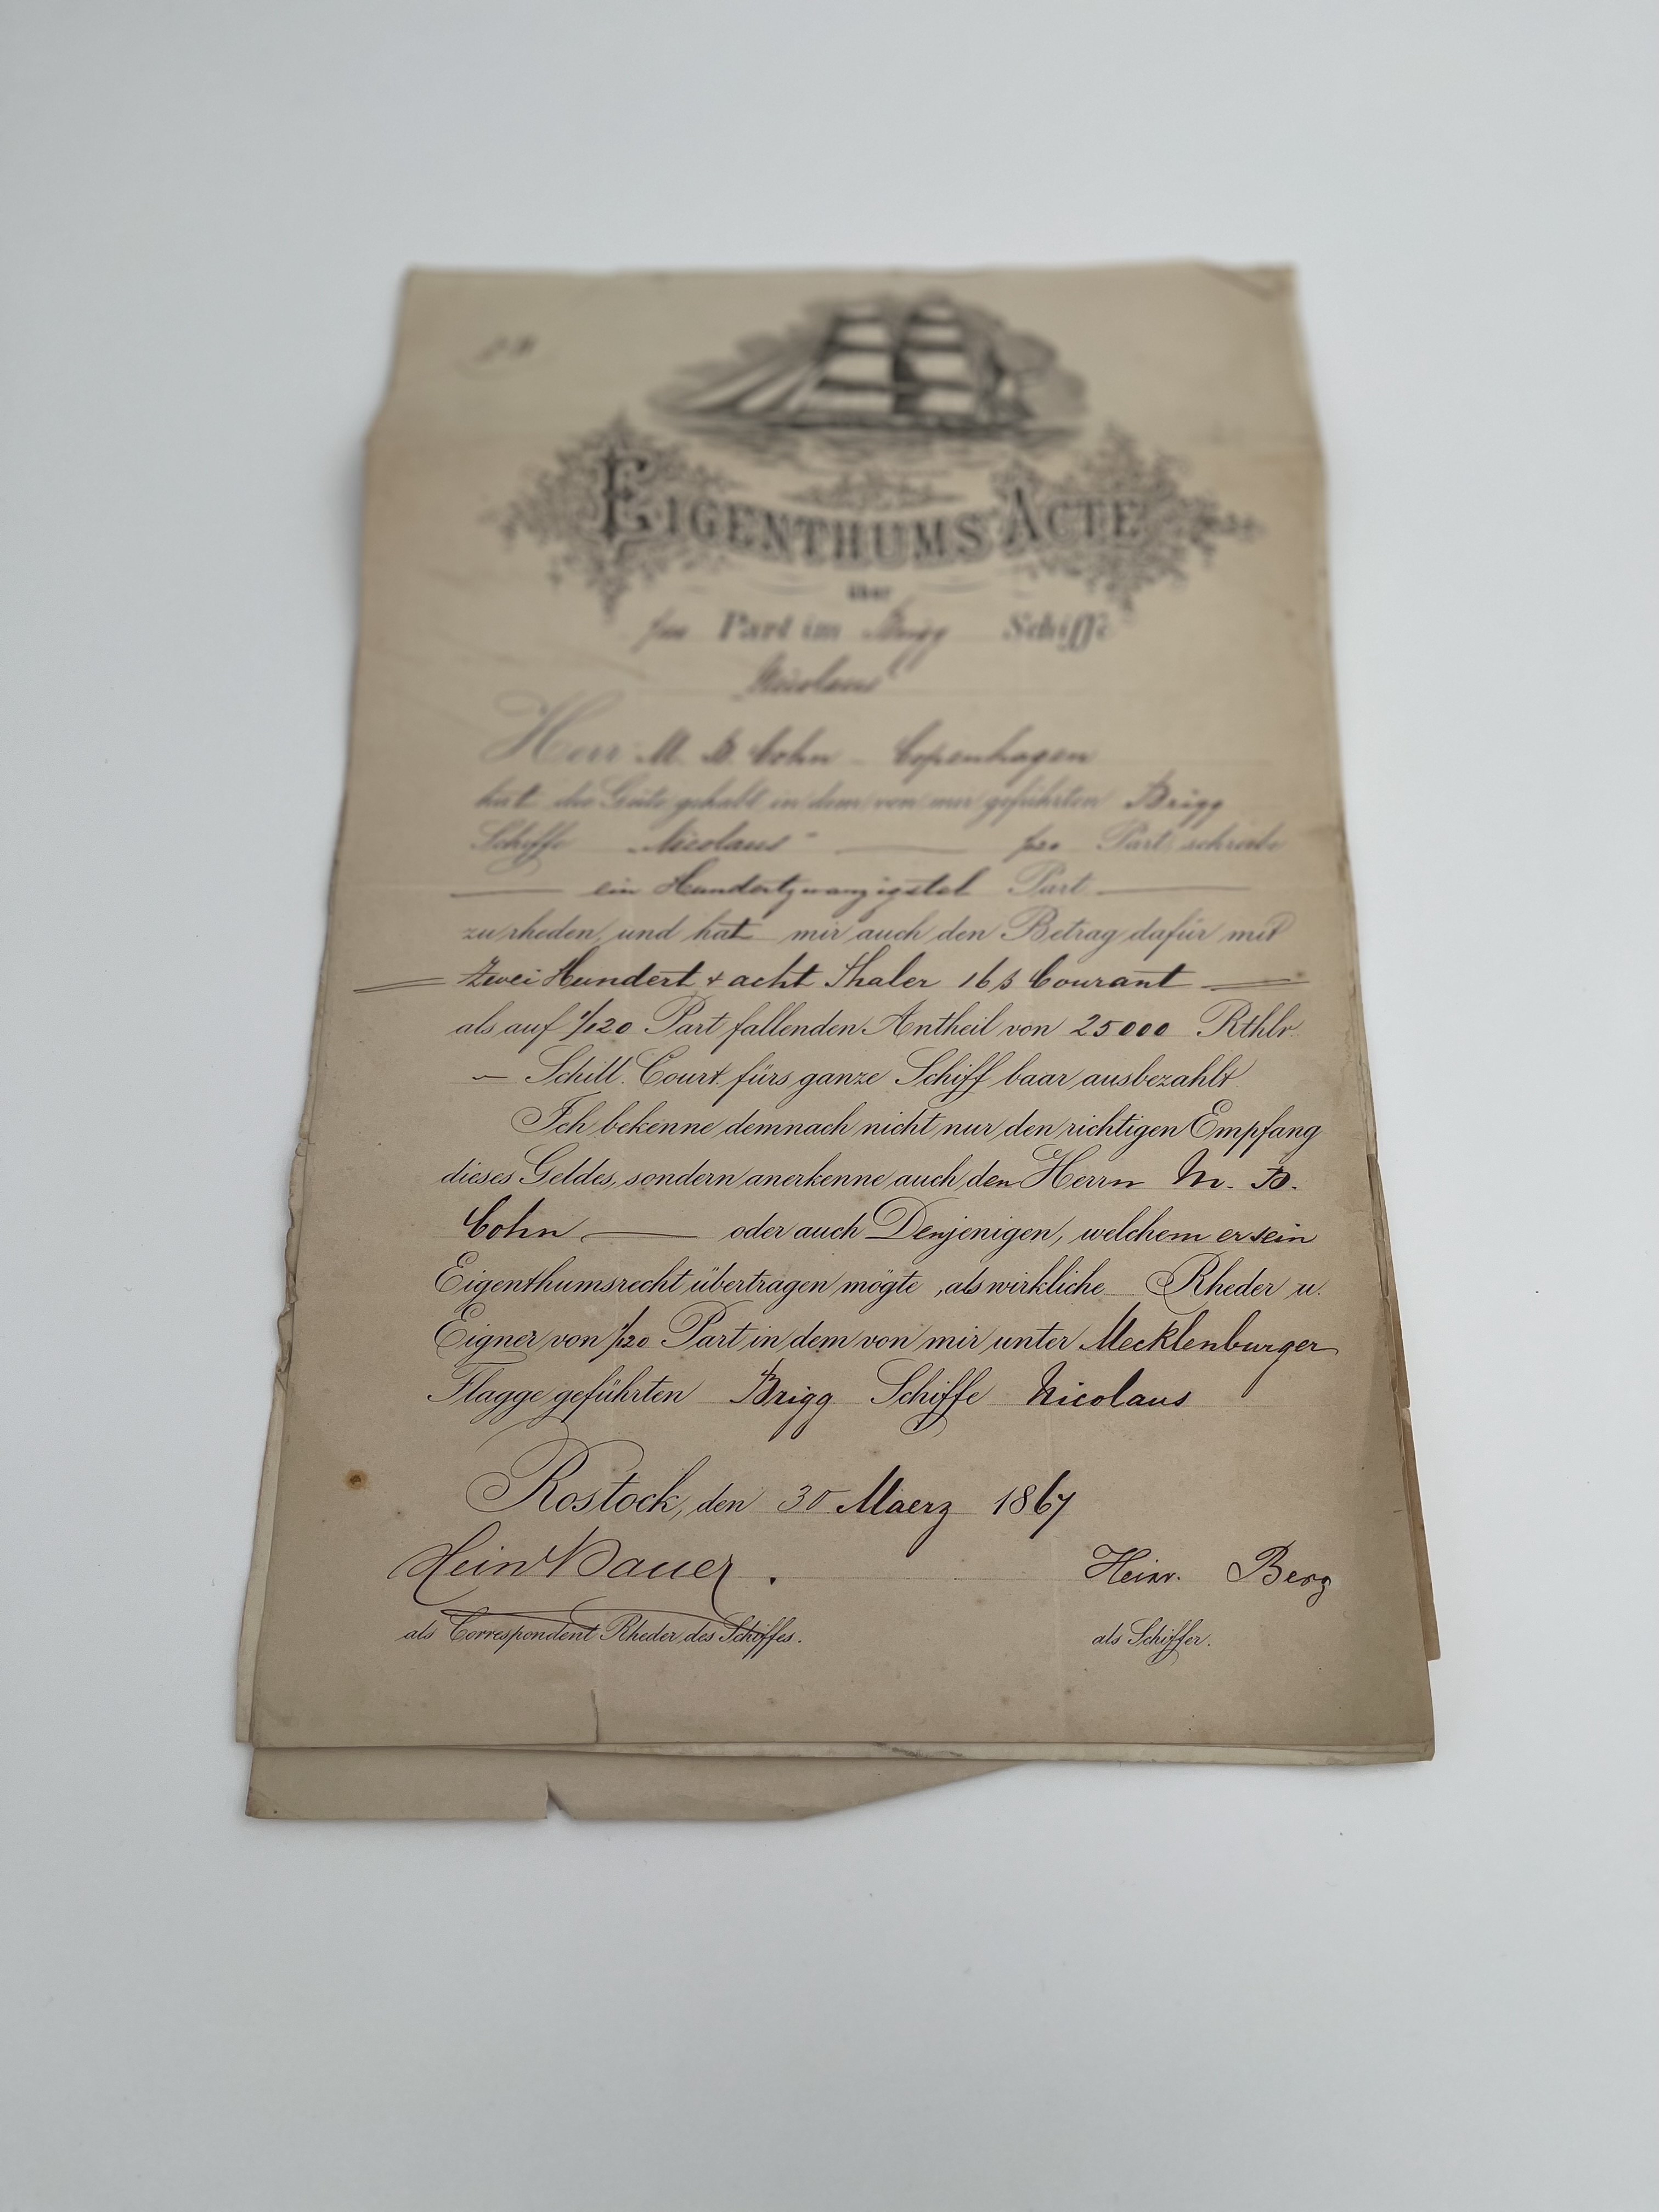 EIGENTHUMS ACTE
über
1/120 Part im Brigg Schiffe
Nicolaus
Herr M. B. Cohn - Copenhagen
hat die Güte gehabt in dem von mir geführten Brigg
Schiffe „Nicolaus“ 1/120 Part, schreibe
ein Hundertzwanzigstel Part
zu rheden, und hat mir auch den Betrag dafür mit
Zwei Hundert & acht Thaler 16 ß Courant
als auf 1/120 Part fallenden Antheil von 25000 Rthlr.
— Schill. Court. fürs ganze Schiff baar ausbezahlt.
Ich bekenne demnach nicht nur den richtigen Empfang
dieses Geldes, sondern anerkenne auch den Herrn M. B.
Cohn oder auch Denjenigen, welchem er sein
Eigenthumsrecht übertragen mögte, als wirkliche Rheder u.
Eigner von 1/120 Part in dem von mir unter Mecklenburger
Flagge geführten Brigg Schiffe Nicolaus
Rostock, den 30 Maerz 1867
Hein Bauer. Heinr. Berg
als Correspondent Rheder des Schiffes. als Schiffer.